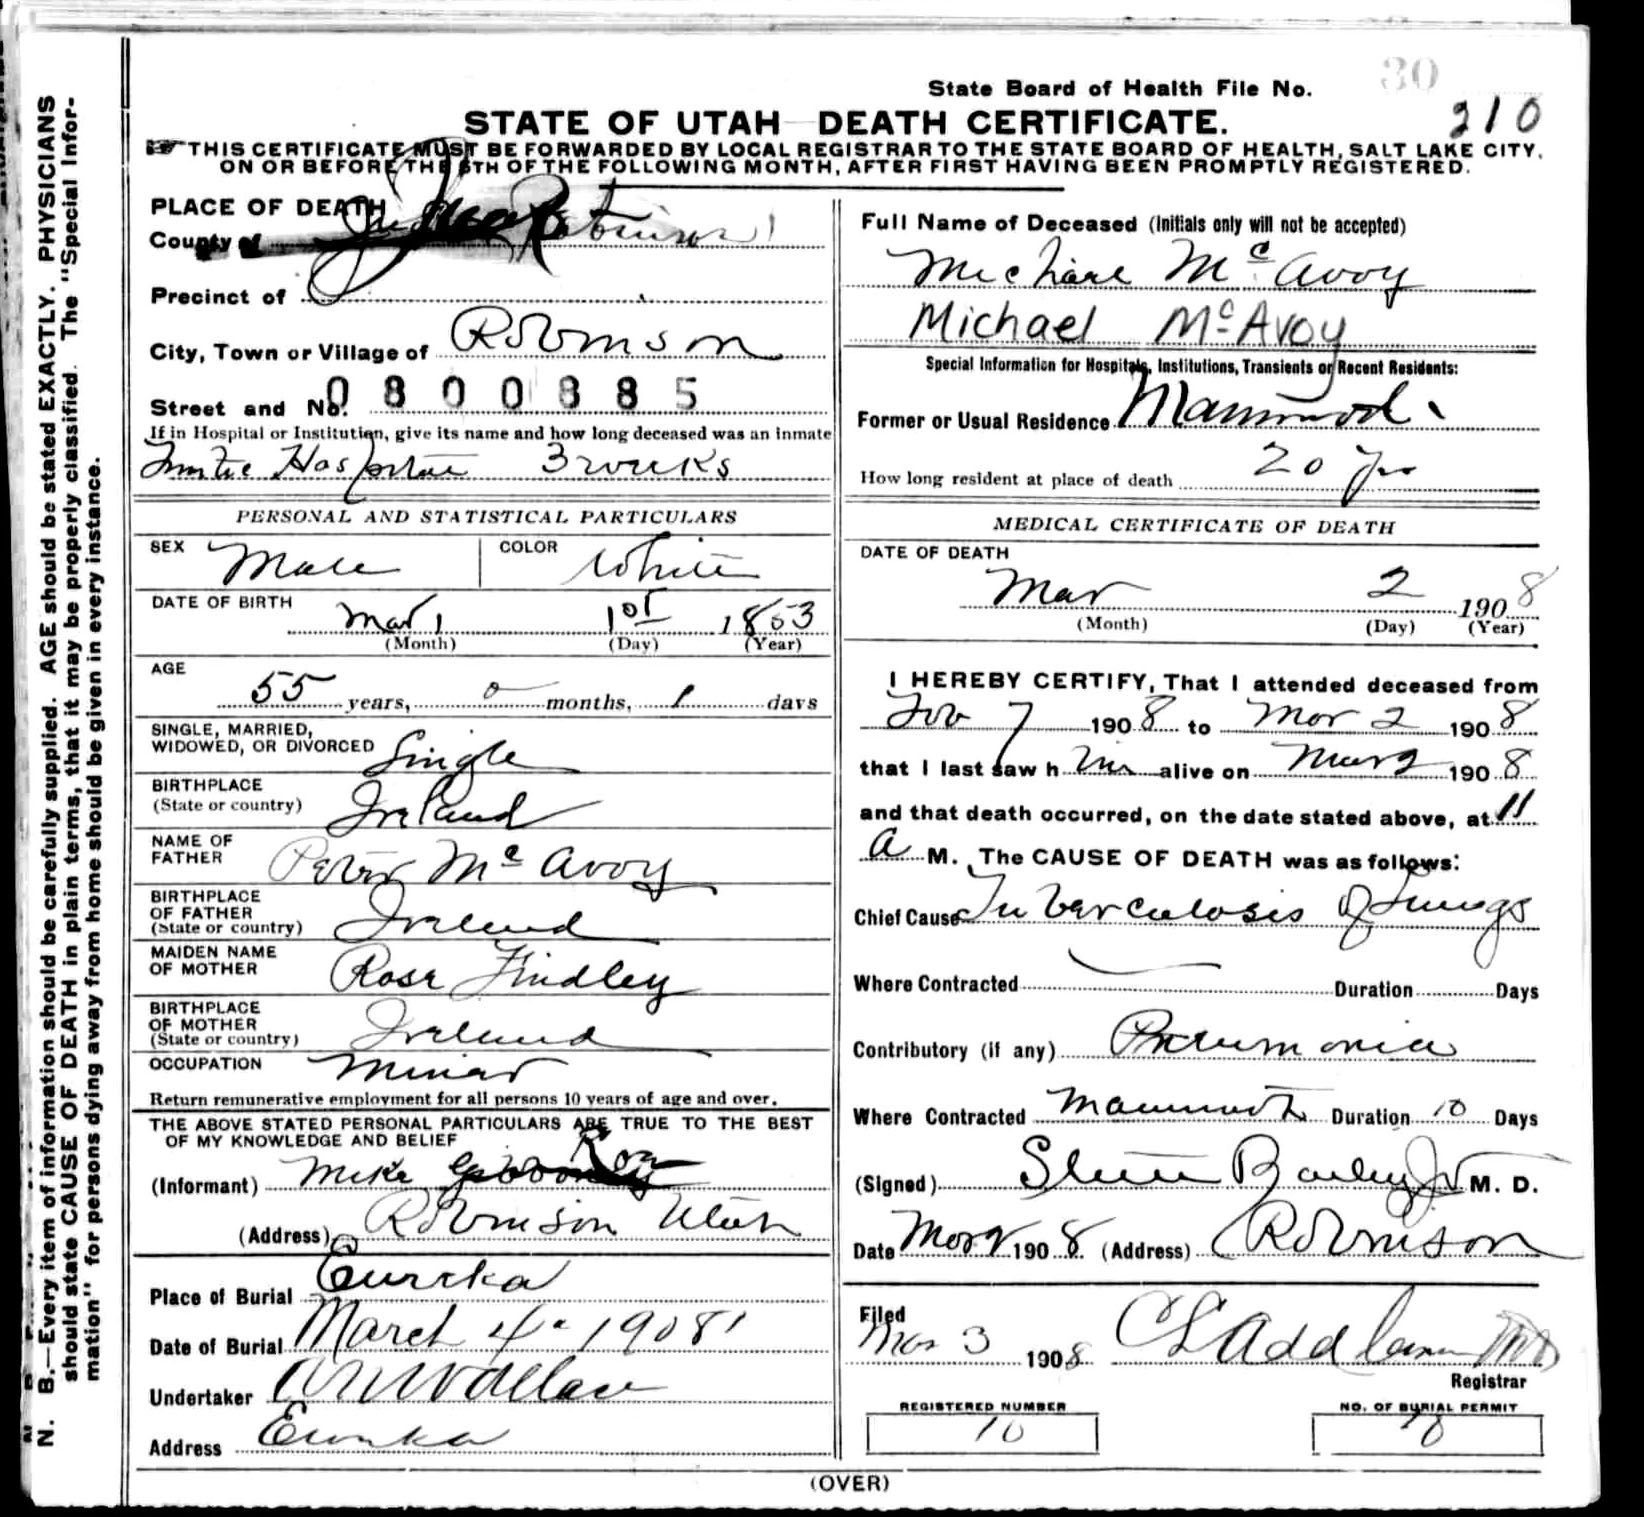 State Board of Health File No. 30
210
STATE OF UTAH DEATH CERTIFICATE.
THIS CERTIFICATE MUST BE FORWARDED BY LOCAL REGISTRAR TO THE STATE BOARD OF HEALTH, SALT LAKE CITY,
ON OR BEFORE THE 5TH OF THE FOLLOWING MONTH, AFTER FIRST HAVING BEEN PROMPTLY REGISTERED.
N. B.—Every item of information should be carefully supplied. AGE should be stated EXACTLY. PHYSICIANS
should state CAUSE OF DEATH in plain terms, that it may be properly classified. The "Special Infor-
mation" for persons dying away from home should be given in every instance.
PLACE OF DEATH
County of Robinson
Precinct of
City, Town or Village of Robinson
Street and No. 0800885
If in Hospital or Institution, give its name and how long deceased was an inmate
Hospital 3 weeks
PERSONAL AND STATISTICAL PARTICULARS
SEX Male COLOR White
DATE OF BIRTH Mar 1st 1853
(Month) (Day) (Year)
AGE
55 years, 0 months, 1 days
SINGLE, MARRIED,
WIDOWED, OR DIVORCED Single
BIRTHPLACE
(State or country) Ireland
NAME OF
FATHER Peter Mc Avoy
BIRTHPLACE
OF FATHER
(State or country) Ireland
MAIDEN NAME
OF MOTHER Rose Findley
BIRTHPLACE
OF MOTHER
(State or country) Ireland
OCCUPATION Miner
Return remunerative employment for all persons 10 years of age and over.
THE ABOVE STATED PERSONAL PARTICULARS ARE TRUE TO THE BEST
OF MY KNOWLEDGE AND BELIEF
(Informant) Mike
(Address) Robinson Utah
Place of Burial Eureka
Date of Burial March 4 - 1908
Undertaker
Address Eureka
Full Name of Deceased (Initials only will not be accepted)
Michael Mc Avoy
Michael Mc Avoy
Special Information for Hospitals, Institutions, Transients or Recent Residents:
Former or Usual Residence Mammoth
How long resident at place of death 20 yrs
MEDICAL CERTIFICATE OF DEATH
DATE OF DEATH
Mar 2 1908
(Month) (Day) (Year)
I HEREBY CERTIFY, That I attended deceased from
Feb 7 1908 to Mar 2 1908
that I last saw him alive on Mar 2 1908
and that death occurred, on the date stated above, at 11
a M. The CAUSE OF DEATH was as follows:
Chief Cause Tuberculosis of Lungs
Where Contracted Duration Days
Contributory (if any) Pneumonia
Where Contracted Mammoth Duration 10 Days
(Signed) Steele Bailey Jr M. D.
Date Mar 2 1908 (Address) Robinson
Filed
Mar 3 1908
Registrar
REGISTERED NUMBER
10
NO. OF BURIAL PERMIT
(OVER)